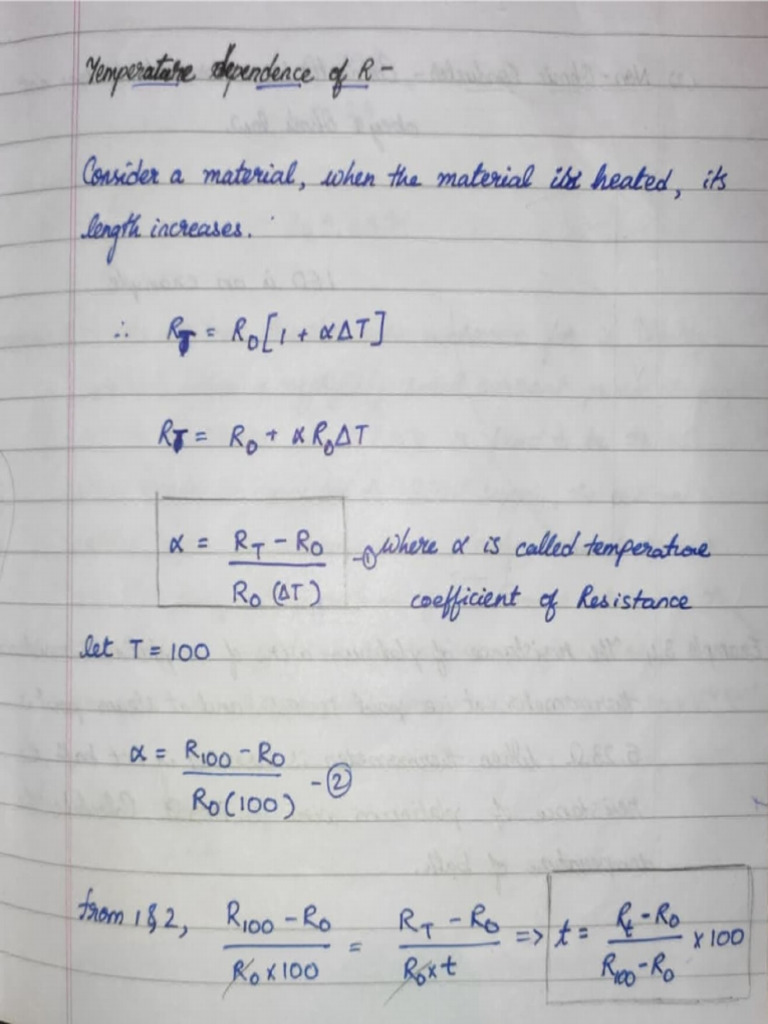 Temperature dependence of R -
Consider a material, when the material is heated, its
length increases.
∴ R_T = R_0 [1 + αΔT]
R_T = R_0 + α R_0 ΔT
α = (R_T - R_0) / (R_0 (ΔT)) - ① where α is called temperature
coefficient of Resistance
let T = 100
α = (R_100 - R_0) / (R_0 (100)) - ②
from 1 & 2, (R_100 - R_0) / (R_0 × 100) = (R_T - R_0) / (R_0 × t) => t = (R_t - R_0) / (R_100 - R_0) × 100